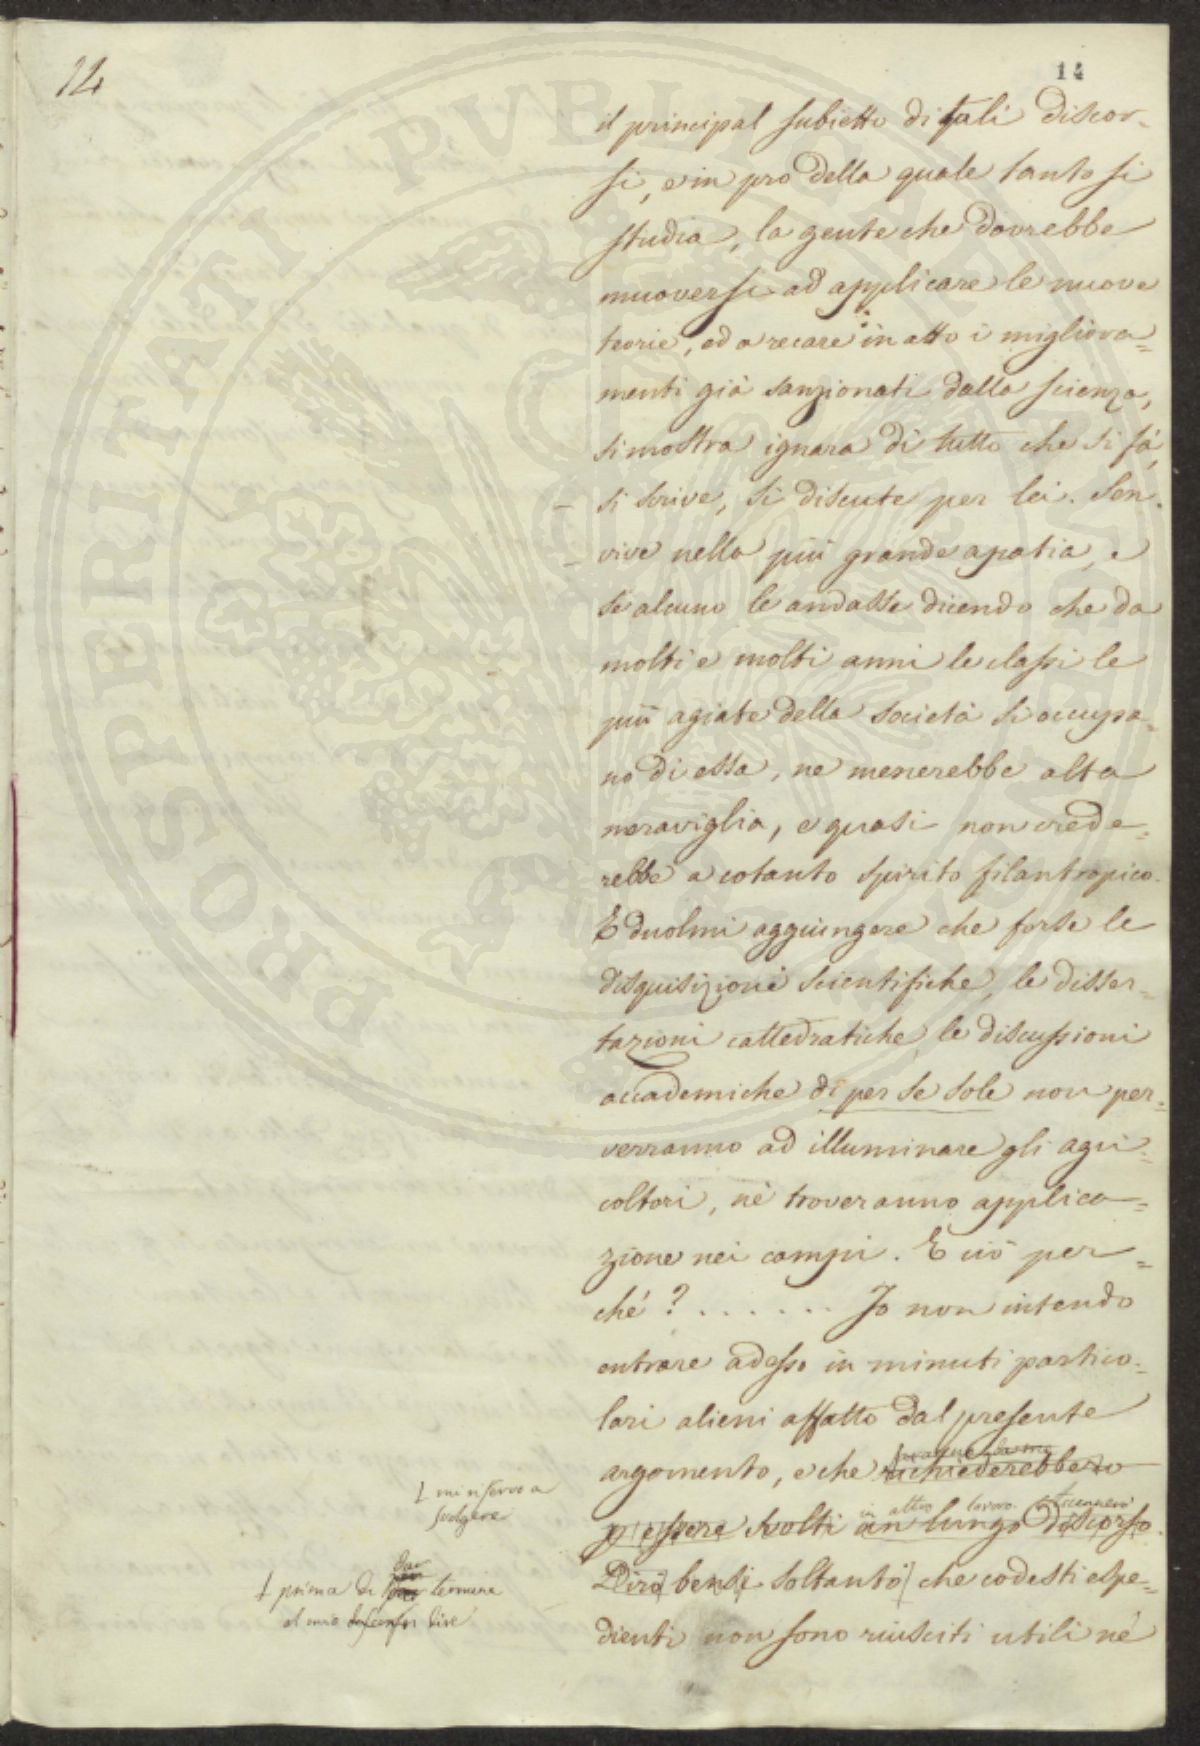 14
14
il principal subietto di tali discor-
si, e in pro della quale tanto si
studia, la gente che dovrebbe
muoversi ad applicare le nuove
teorie, ed a recare in atto i migliora=
menti già sanzionati dalla scienza,
si mostra ignara di tutto che si fà,
si scrive, si discute per lei. Sen
vive nella più grande apatia, e
se alcuno le andasse dicendo che da
molti e molti anni le classi le
più agiate della società si occupa=
no di essa, ne menerebbe alta
maraviglia, e quasi non crede=
rebbe a cotanto spirito filantropico.
E duolmi aggiungere che forse le
disquisizioni scientifiche, le disser=
tazioni cattedratiche, le discussioni
accademiche di per se sole non per=
verranno ad illuminare gli agri=
coltori, nè troveranno applica=
zione nei campi. E ciò per=
ché ? . . . . . . . Io non intendo
entrare adesso in minuti partico=
lari alieni affatto dal presente
argomento, e che richiederebbero
mi riservo a
svolgere
in altro lavoro. Accennerò
essere svolti in lungo discorso.
Dirò bensì soltanto che codesti espe=
prima di termine
al mio dire
dienti non sono riusciti utili né
PROSPERITATI PVBLICAE